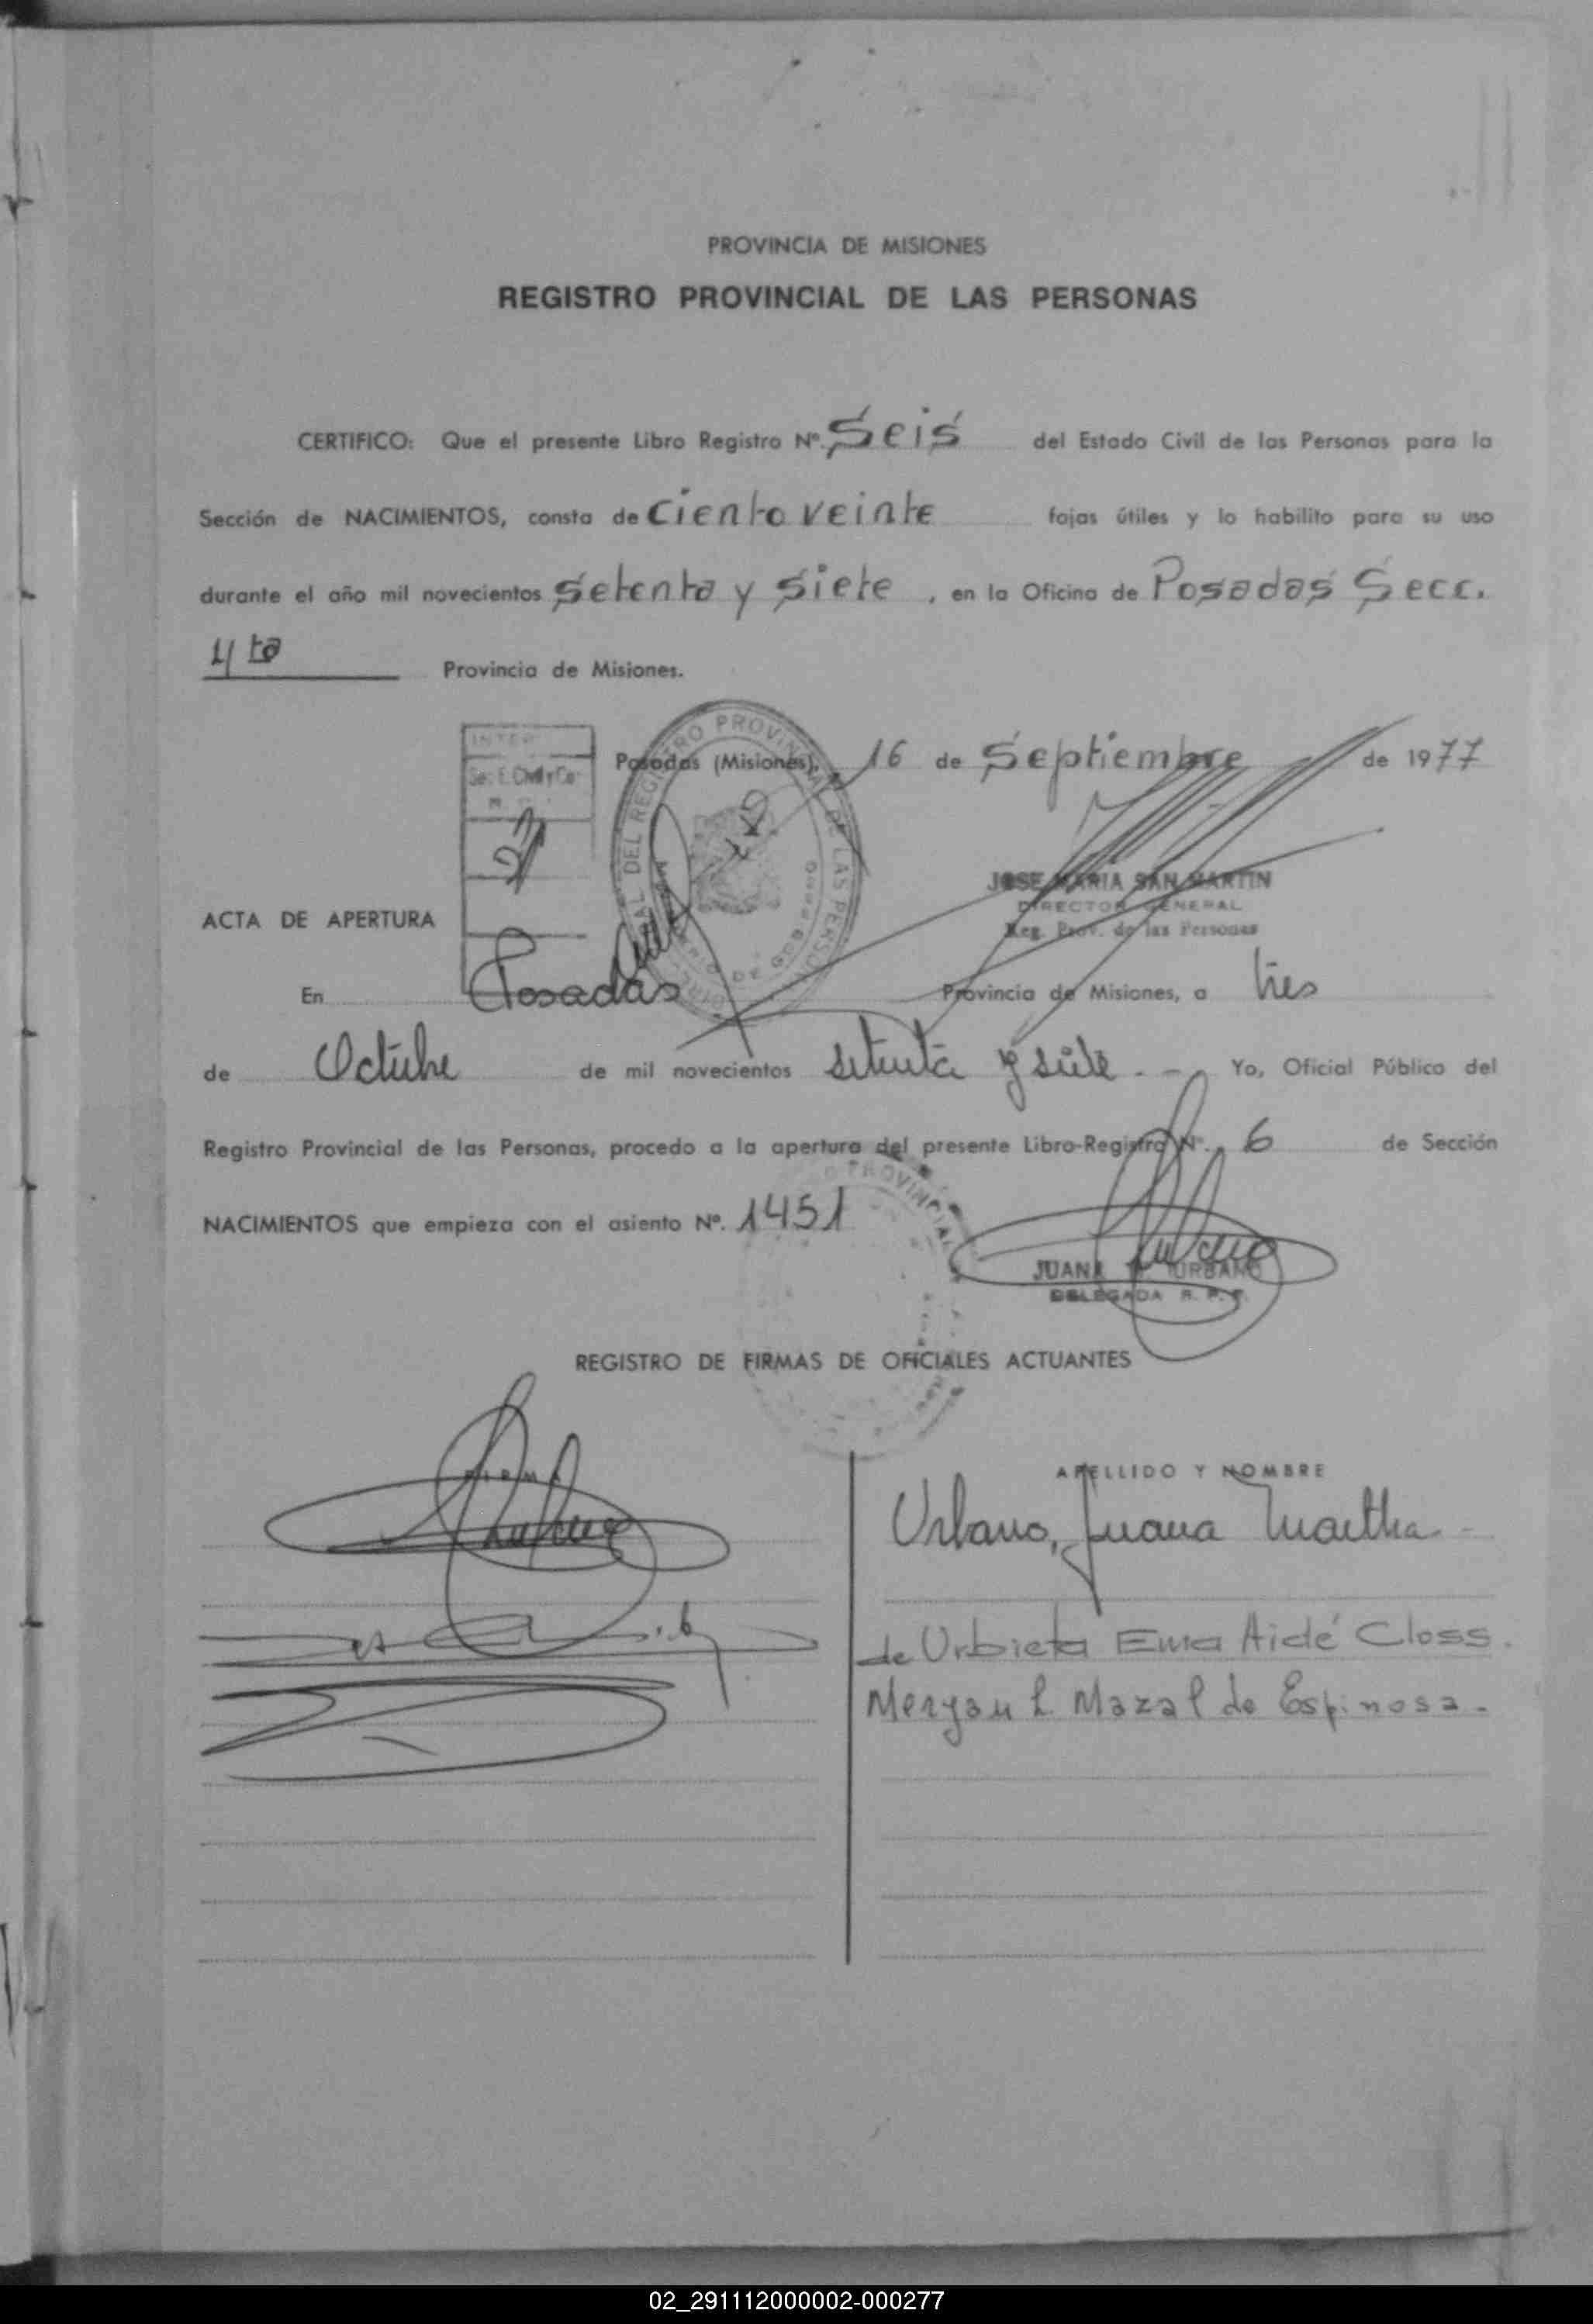 PROVINCIA DE MISIONES
REGISTRO PROVINCIAL DE LAS PERSONAS
CERTIFICO: Que el presente Libro Registro Nº. Seis del Estado Civil de las Personas para la
Sección de NACIMIENTOS, consta de Ciento veinte fojas útiles y lo habilito para su uso
durante el año mil novecientos Setenta y Siete, en la Oficina de Posadas Secc.
4ta Provincia de Misiones.
INTER
Sec. E. Civil y Ca
Posadas (Misiones), 16 de Septiembre de 1977
DEL REGISTRO PROVINCIAL DE LAS PERSONAS
JOSE MARIA SAN MARTIN
DIRECTOR GENERAL
Reg. Prov. de las Personas
ACTA DE APERTURA
En Posadas Provincia de Misiones, a tres
de Octubre de mil novecientos setenta y siete.- Yo, Oficial Público del
Registro Provincial de las Personas, procedo a la apertura del presente Libro-Registro Nº. 6 de Sección
NACIMIENTOS que empieza con el asiento Nº. 1451
PROVINCIAL
JUANA M. URBANO
DELEGADA R. P. P.
REGISTRO DE FIRMAS DE OFICIALES ACTUANTES
FIRMA
APELLIDO Y NOMBRE
Urbano, Juana Martha.-
de Urbieta Ema Aidé Closs.
Meryan L. Mazal de Espinosa.-
02_291112000002-000277